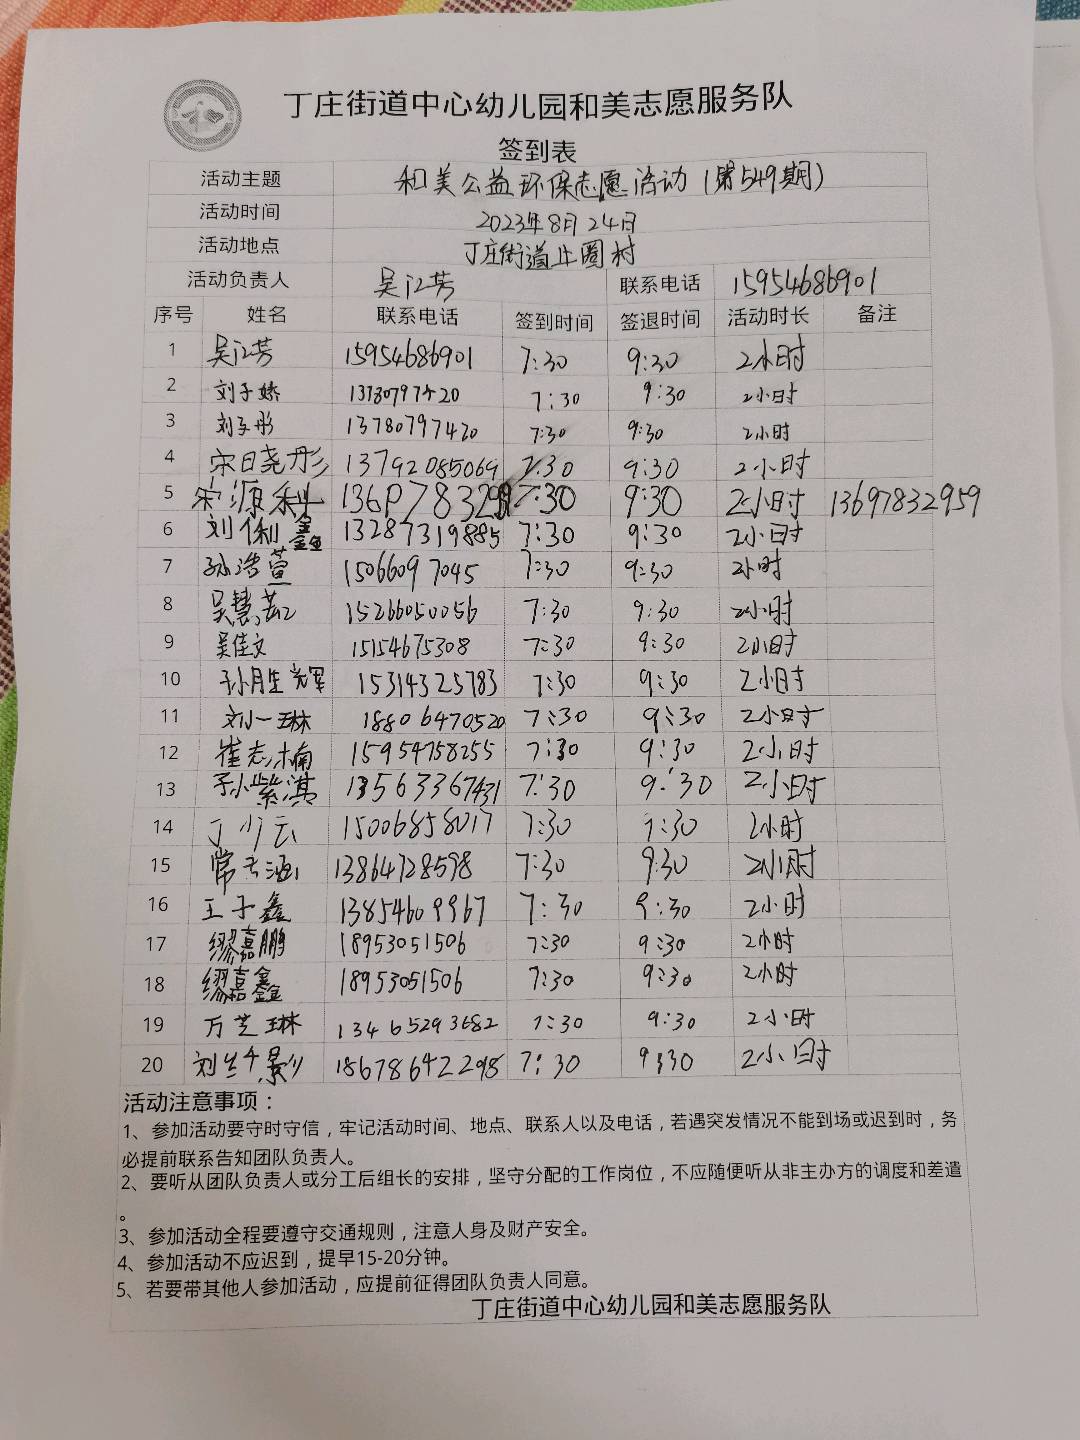 丁庄街道中心幼儿园和美志愿服务队
签到表
活动主题 和美公益环保志愿活动(第549期)
活动时间 2023年8月24日
活动地点 丁庄街道牛圈村
活动负责人 吴江芳 联系电话 15954686901
序号 姓名 联系电话 签到时间 签退时间 活动时长 备注
1 吴江芳 15954686901 7:30 9:30 2小时
2 刘子娇 13780797420 7:30 9:30 2小时
3 刘子彤 13780797420 7:30 9:30 2小时
4 宋晓彤 13792085069 7:30 9:30 2小时
5 宋源科 7:30 9:30 2小时 13697832959
6 刘保鑫 13287319885 7:30 9:30 2小时
7 孙浩萱 15066097045 7:30 9:30 2小时
8 吴慧 15266050056 7:30 9:30 2小时
9 吴佳文 15154675308 7:30 9:30 2小时
10 孙胜 15314325783 7:30 9:30 2小时
11 刘一琳 18806470520 7:30 9:30 2小时
12 崔志楠 15954758255 7:30 9:30 2小时
13 孙紫淇 13563367431 7:30 9:30 2小时
14 丁少云 15006858017 7:30 9:30 2小时
15 常云涵 13864728598 7:30 9:30 2小时
16 王子鑫 13854609967 7:30 9:30 2小时
17 缪嘉鹏 18953051506 7:30 9:30 2小时
18 缪嘉鑫 18953051506 7:30 9:30 2小时
19 万芝琳 13465293682 7:30 9:30 2小时
20 刘 18678642298 7:30 9:30 2小时
活动注意事项：
1、参加活动要守时守信，牢记活动时间、地点、联系人以及电话，若遇突发情况不能到场或迟到时，务
必提前联系告知团队负责人。
2、要听从团队负责人或分工后组长的安排，坚守分配的工作岗位，不应随便听从非主办方的调度和差遣
。
3、参加活动全程要遵守交通规则，注意人身及财产安全。
4、参加活动不应迟到，提早15-20分钟。
5、若要带其他人参加活动，应提前征得团队负责人同意。
丁庄街道中心幼儿园和美志愿服务队